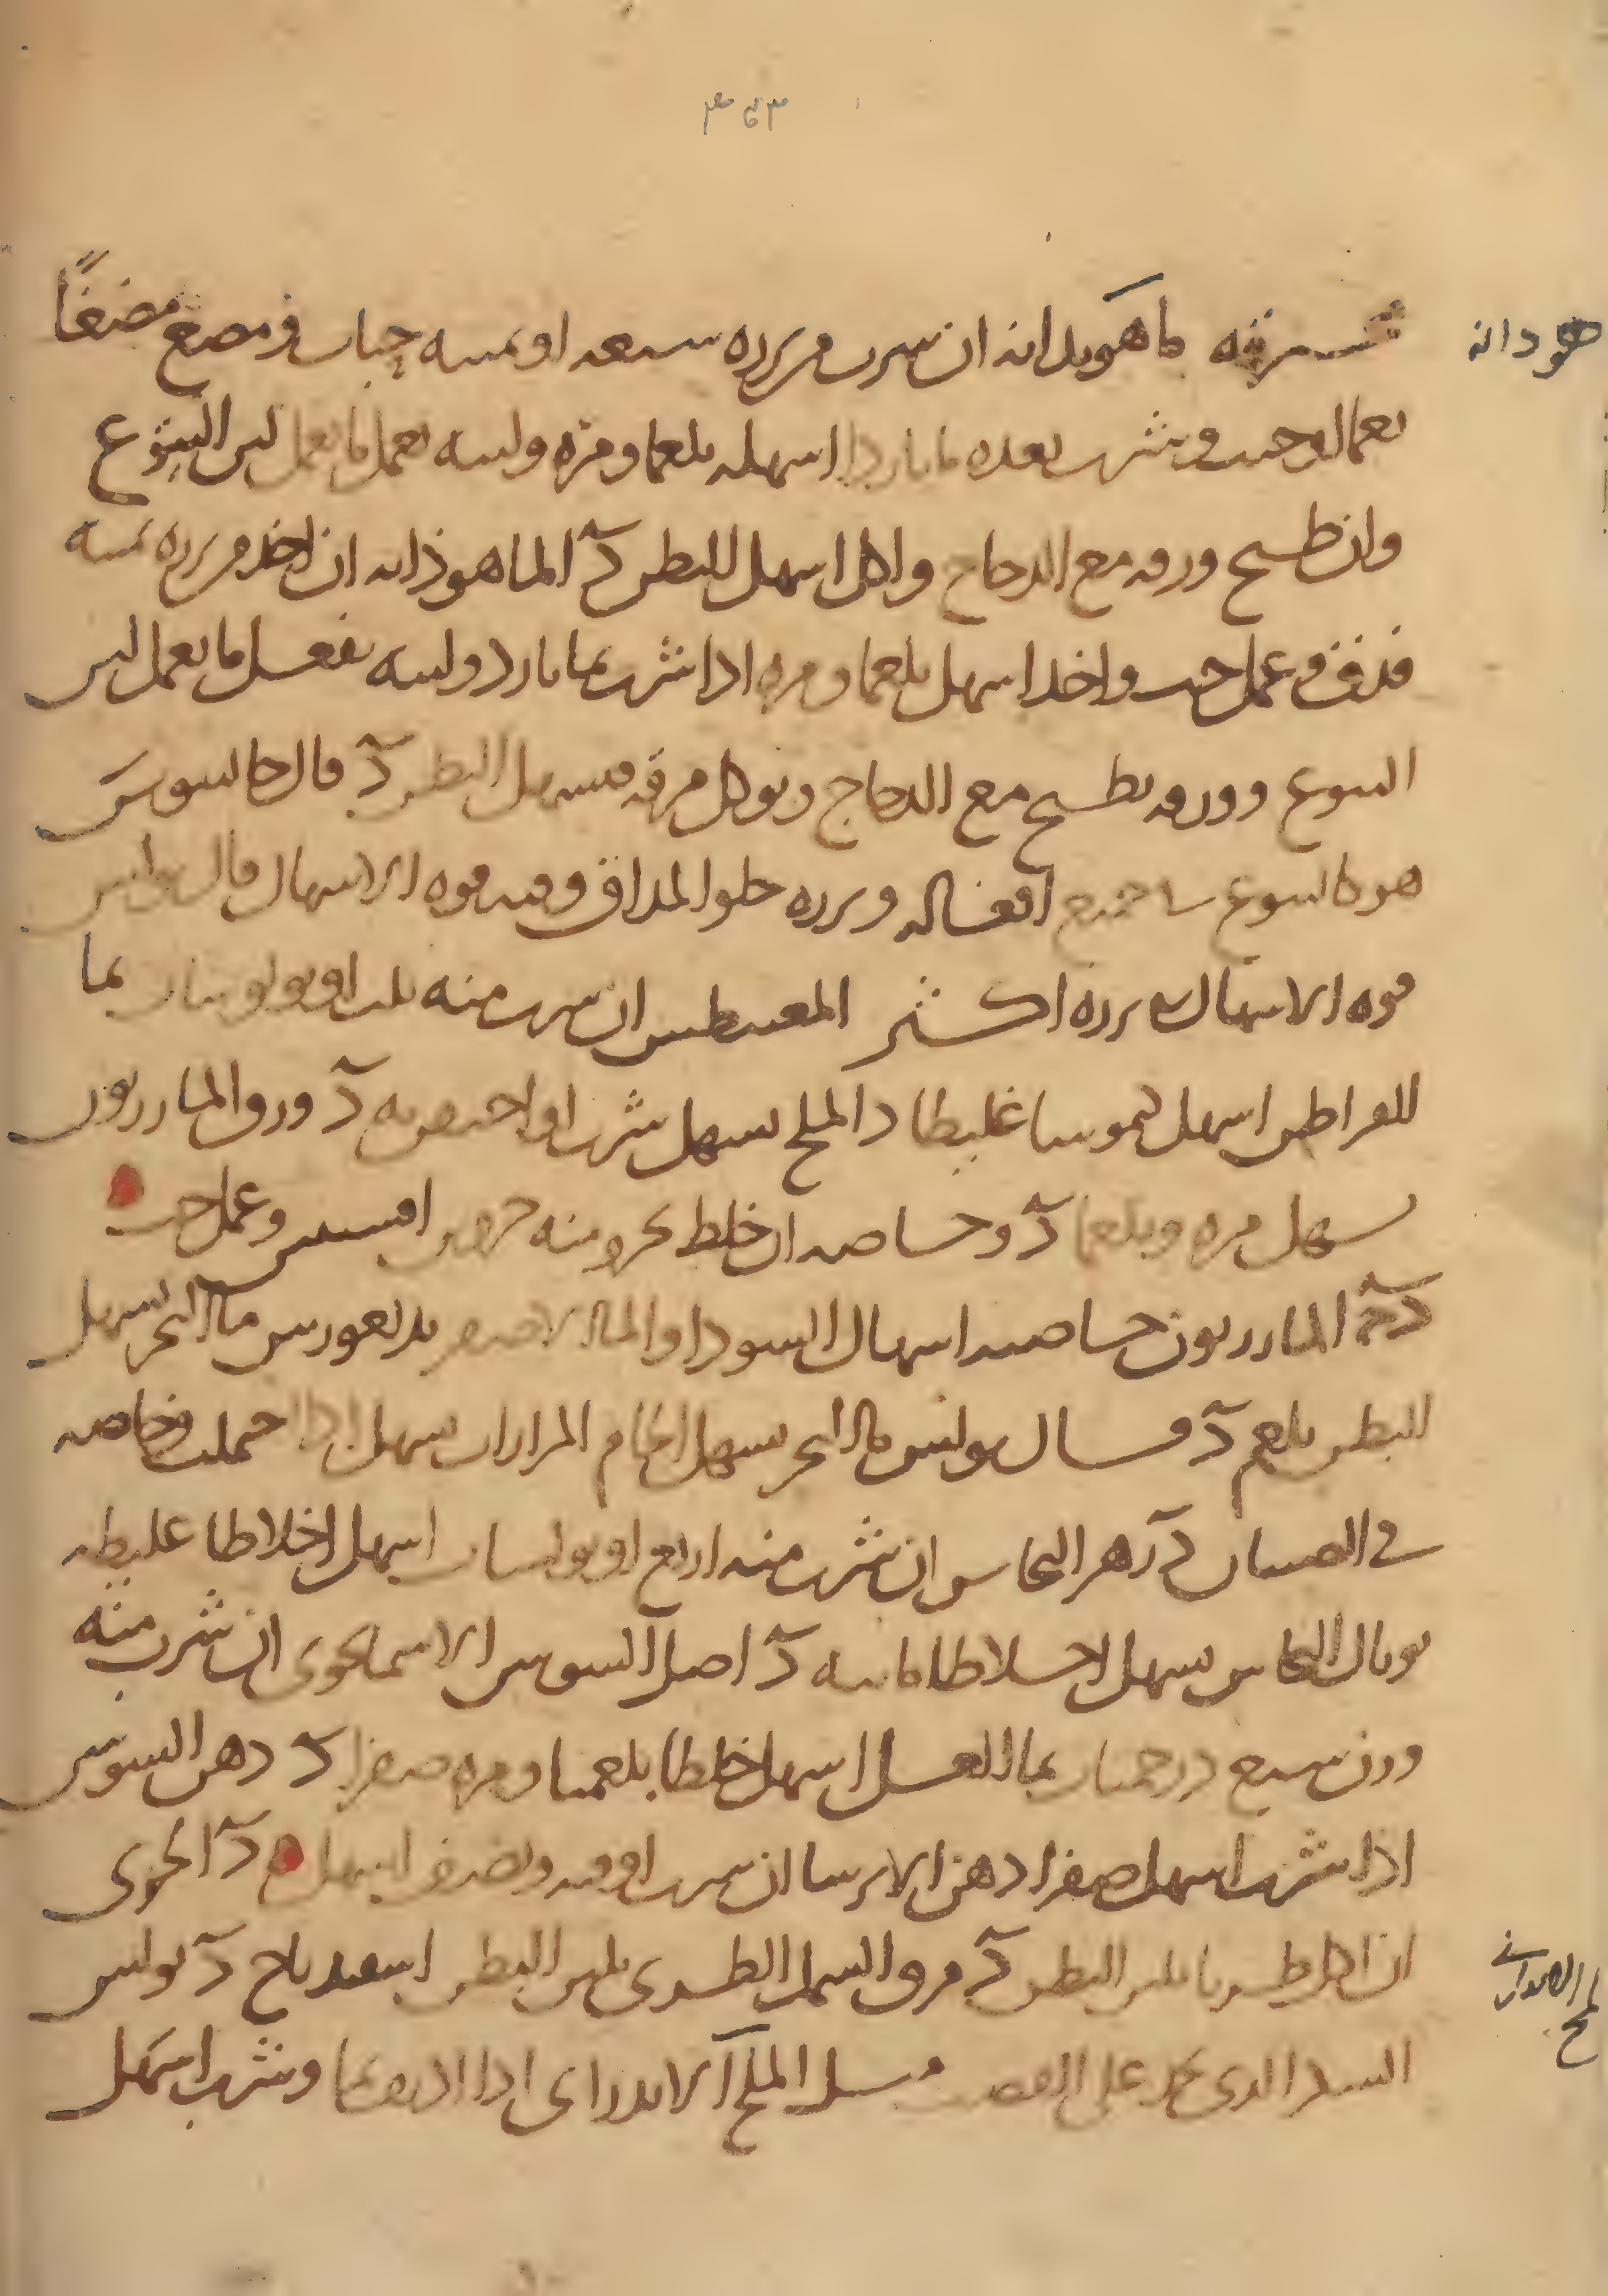 ماهوبدانه ان شرب من بزره سبعة او ثمنية حبات ومضغ مضغًا
هودانه
نعما او حبب وشرب بعده ما باردا اسهله بلغما ومرة ولبنه يعمل ما يعمل لبن اليتوع
وان طبخ ورقه مع الدجاج واكل اسهل البطن د الماهوذانه ان اخذ من بزره ثمنية
فدق وعمل حب واخذ اسهل بلغما ومره اذا شرب بما بارد ولبنه يفعل ما يعمل لبن
اليتوع وورقه يطبخ مع الدجاج ويوكل مرقه فيسهل البطن د قال جالينوس
هو كاليتوع في جميع افعاله وبزره حلو المذاق وفيه قوه الاسهال قال بولس
قوه الاسهال في بزره اكثر المغنطيس ان شرب منه ثلث اوبولوسات بما
القراطن اسهل كيموسا غليظا د الملح يسهل شرب او احتقن به د ورق المازريون
يسهل مره وبلغما د وخاصه ان خلط بجزو منه جزوين افسنتين وعمل حب
د المازريون خاصته اسهال السودا والما الاصفر بديغورس ما البحر يسهل
البطن بلغم د قال بولس ما البحر يسهل الخام المرارات يسهل اذا حملت وخاصه
في الصبيان د زهر النحاس ان شرب منه اربع اوبولسات اسهل اخلاطا غليظه
توبال النحاس يسهل اخلاطا مائيه د اصل السوسن الاسمانجوني ان شرب منه
وزن سبع درخميات بما العسل اسهل خلطا بلغميا ومره صفرا د دهن السوسن
اذا شرب اسهل صفرا دهن الايرسا ان شرب اوقيه ونصف اسهل د الجرى
ان اكل طريا يلين البطن د مرق السمك الطرى يلين البطن اسفيدباج د بولس
الملح الاندراى اذا اديف بما وشرب اسهل